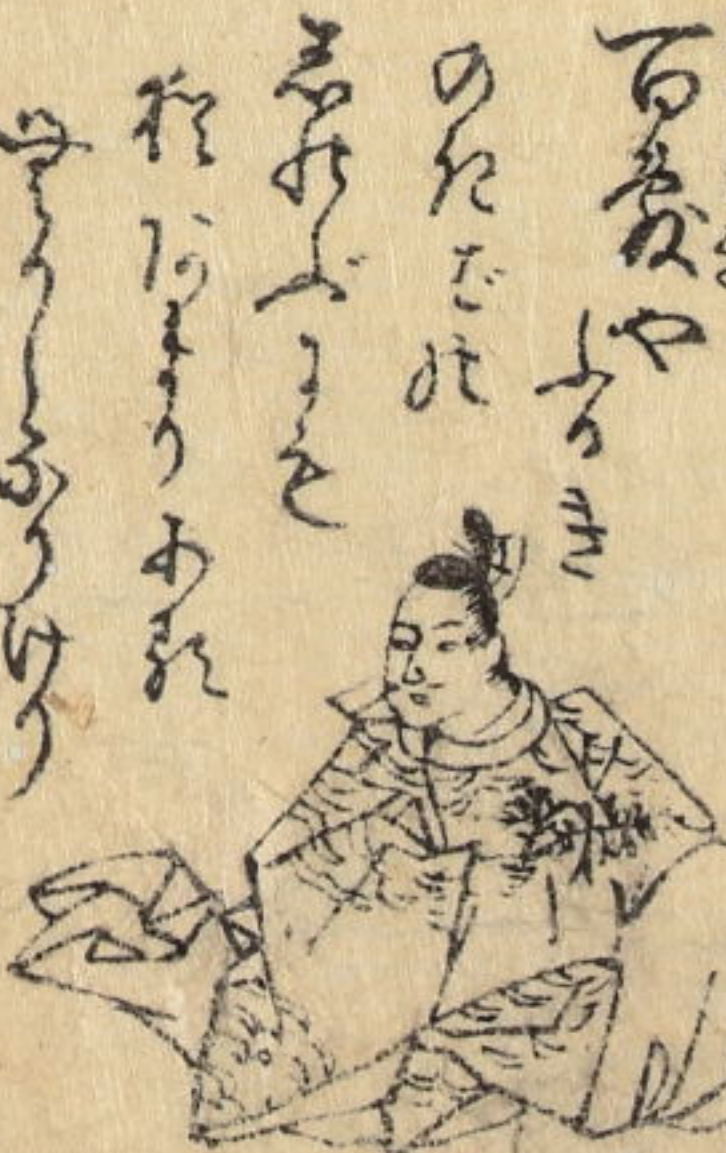 百敷や
ふるき
のきばの
志のぶにも
猶あまりある
むかしなりけり